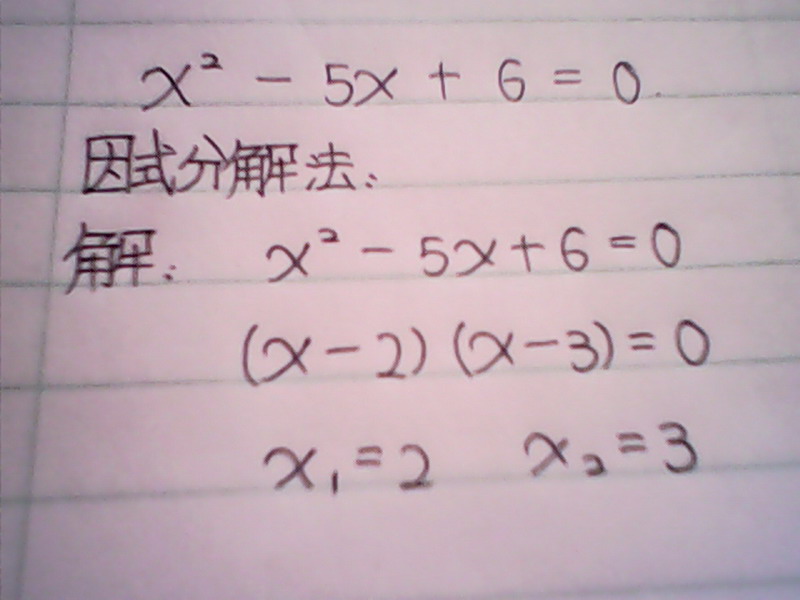 x² - 5x + 6 = 0.
因式分解法:
解: x² - 5x + 6 = 0
(x - 2) (x - 3) = 0
x₁ = 2 x₂ = 3